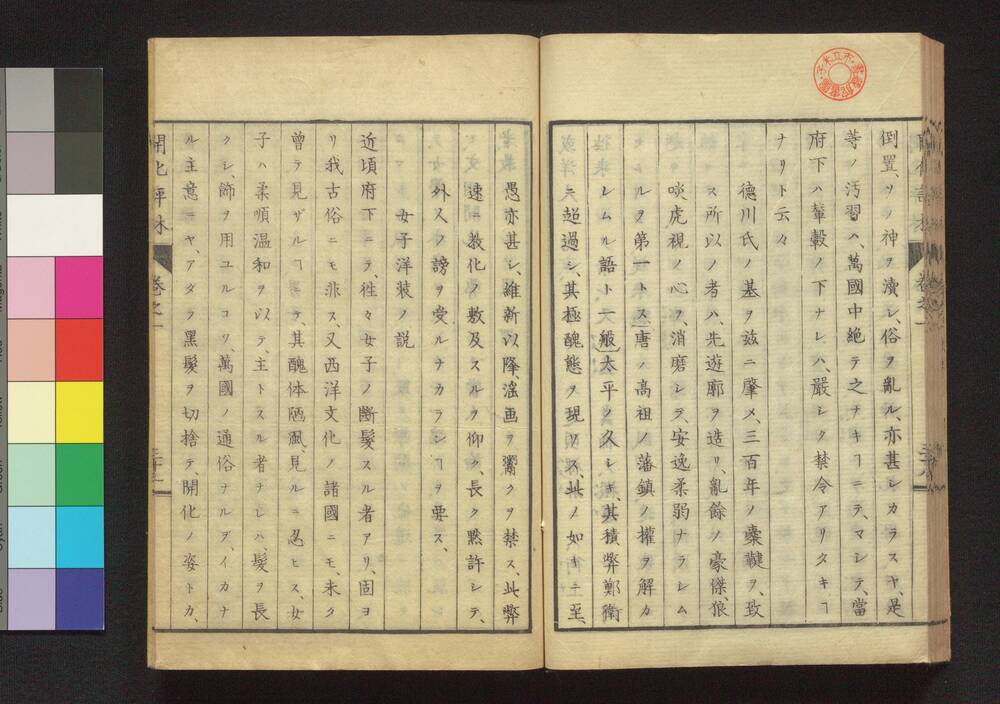 倒置、リノ神ヲ瀆シ、俗ヲ亂ル、亦甚シカラスヤ、是
等ノ汚習ハ、萬國中絶テ之ナキヿニテ、マシテ、當
府下ハ輦轂ノ下ナレハ、嚴シク禁令アリタキヿ
ナリト云々
德川氏ノ基ヲ玆ニ肇メ、三百年ノ櫜鞬ヲ、致
ス所以ノ者ハ、先遊廓ヲ造リ、亂餘ノ豪傑、狼
啖虎視ノ心ヲ、消磨シテ、安逸柔弱ナラシム
ルヲ第一トス、唐ノ高祖ノ藩鎮ノ權ヲ解カ
レムル語ト一般、太平ノ久シキ、其積弊鄭衛
ニ超過シ、其極醜態ヲ現リス、此ノ如キニ至、
愚亦甚シ、維新以降、滛画ヲ鬻クヲ禁ス、此弊
速ニ教化ノ敷及スルヲ仰ク、長ク黙許シテ、
外人ノ謗ヲ受ルナカランヿヲ要ス、
女子洋装ノ説
近頃府下ニテ、徃々女子ノ斷髮スル者アリ、固ヨ
リ我古俗ニモ非ス、又西洋文化ノ諸國ニモ、未ク
曾テ見ザルヿニテ、其醜体陋風、見ルニ忍ヒス、女
子ハ柔順温和ヲ以テ、主トスル者ナレハ髮ヲ長
クシ、飾ヲ用ユルコソ、萬國ノ通俗ナルヲ、イカナ
ル主意ニヤ、アタラ黑髮ヲ切捨テ、開化ノ姿トカ、
開化評林 卷之一